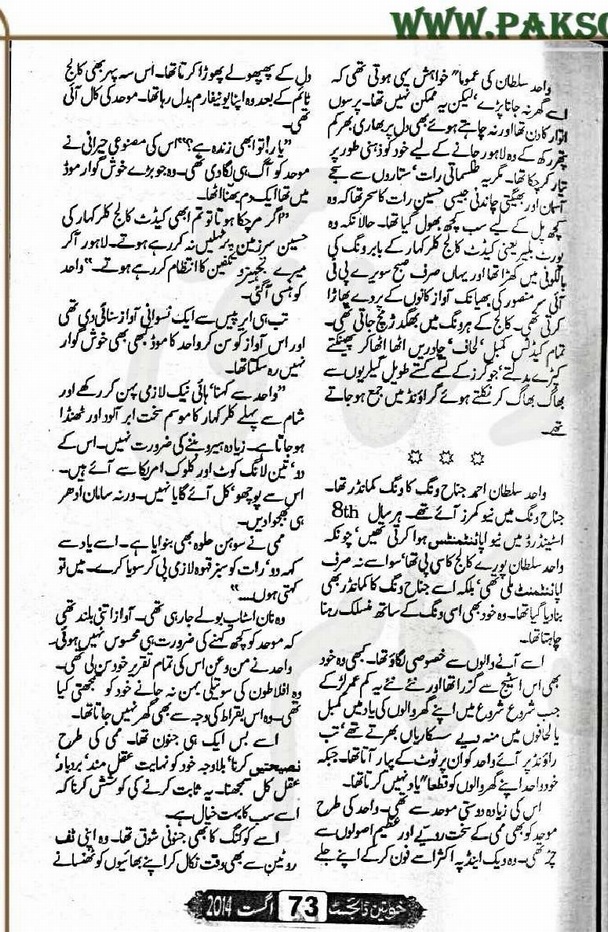 WWW.PAKSO
واحد سلطان کی عموماً" خواہش یہی ہوتی تھی کہ
اسے گھر نہ جانا پڑے، لیکن یہ ممکن نہیں تھا۔ پرسوں
اتوار کا دن تھا اور نہ چاہتے ہوئے بھی دل پر بھاری بھر کم
پتھر رکھ کے وہ لاہور جانے کے لیے خود کو ذہنی طور پر
تیار کر چکا تھا۔ مگر یہ طلسماتی رات، ستاروں سے سجے
آسمان اور بھیگتی چاندنی جیسی حسین رات کا سحر تھا کہ وہ
کچھ پل کے لیے سب کچھ بھول گیا تھا۔ حالانکہ وہ
پورٹ بلیر یعنی کیڈٹ کالج کلر کہار کے بابر ونگ کی
بالکونی میں کھڑا تھا اور یہاں صرف صبح سویرے پی ٹی
آئی سر منصور کی بھیانک آواز کانوں کے پردے پھاڑا
کرتی تھی۔ کالج کے ہر ونگ میں بھگدڑ مچ جاتی تھی۔
تمام کیڈٹس کمبل، لحاف، چادریں اٹھا اٹھا کر پھینکتے
کپڑے بدلتے، جوگرز کے تسمے کستے طویل گیلریوں سے
بھاگ بھاگ کر نکلتے ہوئے گراؤنڈ میں جمع ہو جاتے
تھے۔
☼ ☼ ☼
واحد سلطان احمد جناح ونگ کا ونگ کمانڈر تھا۔
جناح ونگ میں نیو کمرز آئے تھے۔ ہر سال 8th
اسٹینڈرڈ میں نیو اپائنٹمنٹس ہوا کرتی تھیں، چونکہ
واحد سلطان پورے کالج کا سی پی تھا، سو اسے نہ صرف
اپائنٹمنٹ ملی تھی، بلکہ اسے جناح ونگ کا کمانڈر بھی
بنا دیا گیا تھا۔ وہ خود بھی اسی ونگ کے ساتھ منسلک رہنا
چاہتا تھا۔
اسے آنے والوں سے خصوصی لگاؤ تھا۔ کبھی وہ خود
بھی اس اسٹیج سے گزرا تھا اور نئے نئے یہ کم عمر لڑکے
جب شروع شروع میں اپنے گھر والوں کی یاد میں کمبل
یا لحافوں میں منہ دیے سسکاریاں بھرتے تھے، تب
راؤنڈ پر آئے واحد کو ان پر ٹوٹ کے پیار آتا تھا۔ جبکہ
خود واحد اپنے گھر والوں کو قطعاً" یاد نہیں کرتا تھا۔
اس کی زیادہ دوستی موحد سے تھی۔ واحد کی طرح
موحد کو بھی ممی کے سخت رویے اور عظیم اصولوں سے
چڑ تھی۔ وہ ویک اینڈ پہ اکثر اسے فون کر کے اپنے جلے
دل کے پھپھولے پھوڑا کرتا تھا۔ اس سہ پہر بھی کالج
ٹائم کے بعد وہ اپنا یونیفارم بدل رہا تھا۔ موحد کی کال آئی
تھی۔
"یار! تو ابھی زندہ ہے؟" اس کی مصنوعی حیرانی نے
موحد کو آگ ہی لگا دی تھی۔ وہ جو بڑے خوش گوار موڈ
میں تھا ایک دم بھنا اٹھا۔
"اگر مر چکا ہوتا تو تم ابھی کیڈٹ کالج کلر کہار کی
حسین سرزمین پر ٹہلیں نہ کر رہے ہوتے۔ لاہور آ کر
میرے تجہیز و تکفین کا انتظام کر رہے ہوتے۔" واحد
کو ہنسی آ گئی۔
تب ہی ایر پیس سے ایک نسوانی آواز سنائی دی تھی
اور اس آواز کو سن کر واحد کا موڈ بھی بھی خوش گوار
نہیں رہ سکتا تھا۔
"واحد سے کہنا، ہائی نیک لازمی پہن کر رکھے اور
شام سے پہلے کلر کہار کا موسم سخت ابر آلود اور ٹھنڈا
ہو جاتا ہے۔ زیادہ ہیرو بننے کی ضرورت نہیں۔ اس کے
دو، تین لانگ کوٹ اور کلوک امریکا سے آئے ہیں۔
اس سے پوچھو، کل آئے گا یا نہیں۔ ورنہ سامان ادھر
ہی بھجوا دیں۔
ممی نے سوہن حلوہ بھی بنوایا ہے۔ اسے یاد سے
کہہ دو، رات کو سبز قہوہ لازمی پی کر سویا کرے۔ میں تو
کہتی ہوں۔۔۔"
وہ نان اسٹاپ بولے جا رہی تھی۔ آواز اتنی بلند تھی
کہ موحد کو کچھ کہنے کی ضرورت ہی محسوس نہیں ہوئی۔
واحد نے من و عن اس کی تمام تقریر خود سن لی تھی۔
وہ افلاطون کی سوتیلی بہن نہ جانے خود کو کیا سمجھتی
تھی۔ وہ اس بقراط کی وجہ سے بھی گھر نہیں جاتا تھا۔
اسے بس ایک ہی جنون تھا۔ ممی کی طرح
نصیحتیں کرنا، بلاوجہ خود کو نہایت عقل مند، بردبار،
عقل کل سمجھنا۔ یہ ثابت کرنے کی کوشش کرنا کہ
اسے سب کا بہت خیال ہے۔
اسے کوکنگ کا بھی جنونی شوق تھا۔ وہ اپنی ٹف
روٹین سے بھی وقت نکال کر اپنے بھائیوں کو ٹھنسانے
خواتین ڈائجسٹ 73 اگست 2014